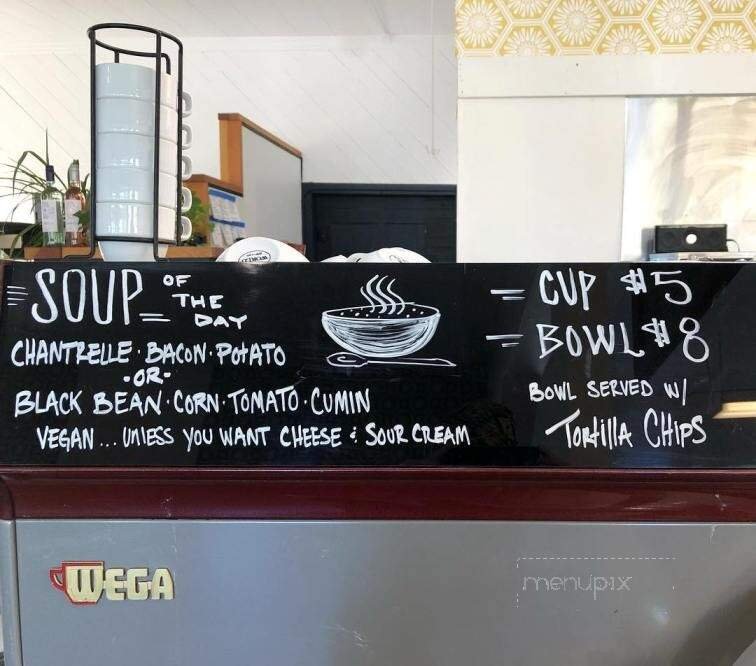 SOUP OF THE DAY
CHANTRELLE · BACON · POTATO
-OR-
BLACK BEAN · CORN · TOMATO · CUMIN
VEGAN... UNLESS YOU WANT CHEESE & SOUR CREAM
CUP $5
BOWL $8
BOWL SERVED W/
TORTILLA CHIPS
WEGA
menupix